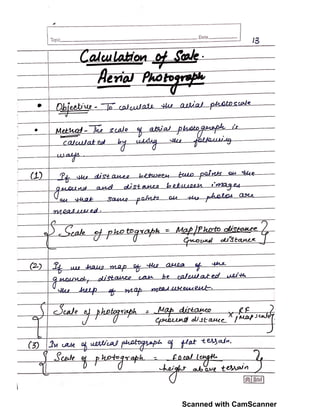 Topic
Date
13
Calculation of Scale.
Aerial Photograph
• Objective - To calculate the aerial photoscale
• Method - The scale of aerial photograph is
calculated by using the following
ways.
(1) If the distance between two points on the
ground and distance between images
on that same points on the photos are
measured.
{ Scale of photograph = Map/Photo distance }
Ground distance
(2) If we have map of the area of the
ground, distance can be calculated with
the help of map measurement.
{ Scale of photograph = Map distance x RF
Ground distance (map scale) }
(3) In case of vertical photograph of flat terrain.
{ Scale of photograph = Focal length
height above terrain }
Scanned with CamScanner